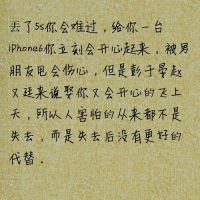 丢了5s你会难过，给你一台
iPhone6你立刻会开心起来，被男
朋友甩会伤心，但是彭于晏赵
又廷来说娶你又会开心的飞上
天，所以人害怕的从来都不是
失去，而是失去后没有更好的
代替。